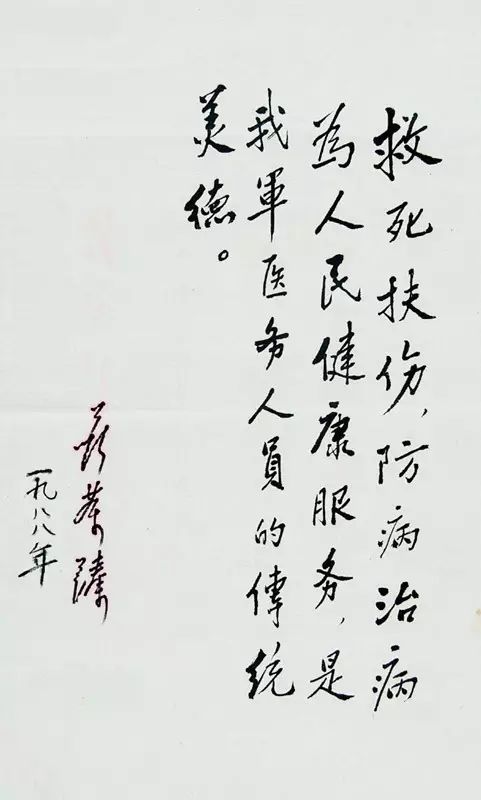 救死扶伤，防病治病
為人民健康服务，是
我軍医务人員的傳统
美德。
聂荣臻
一九八八年